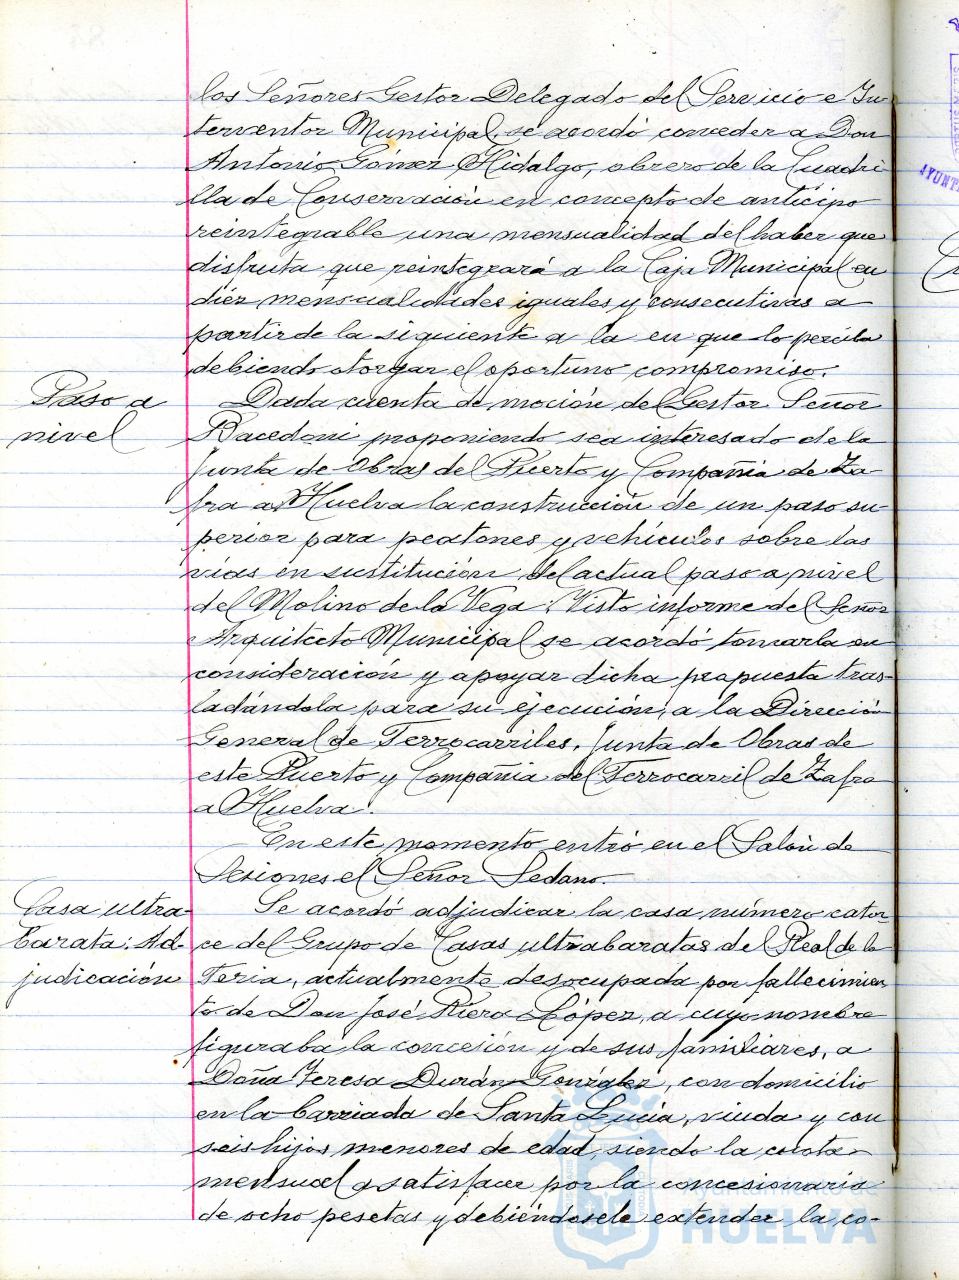 los Señores Gestor Delegado del Servicio e In-
terventor Municipal, se acordó conceder a Don
Antonio Gómez Hidalgo, obrero de la Cuadri-
lla de Conservación en concepto de anticipo
reintegrable una mensualidad del haber que
disfruta que reintegrará a la Caja Municipal en
diez mensualidades iguales y consecutivas a
partir de la siguiente a la en que lo perciba
debiendo otorgar el oportuno compromiso.
Paso a
nivel
Dada cuenta de moción del Gestor Señor
Bacedoni proponiendo sea interesado de la
Junta de Obras del Puerto y Compañia de Za-
fra a Huelva la construcción de un paso su-
perior para peatones y vehículos sobre las
vías en sustitución del actual paso a nivel
del Molino de la Vega: Visto informe del Señor
Arquitecto Municipal se acordó tomarla en
consideración y apoyar dicha propuesta tras-
ladándola para su ejecución, a la Dirección
General de Ferrocarriles, Junta de Obras de
este Puerto y Compañia del Ferrocarril de Zafra
a Huelva.
En este momento entró en el Salón de
Sesiones el Señor Sedano.
Casa ultra-
barata: Ad-
judicación
Se acordó adjudicar la casa número cator-
ce del Grupo de Casas ultrabaratas del Real de la
Feria, actualmente desocupada por fallecimien-
to de Don José Riera López, a cuyo nombre
figuraba la concesión y de sus familiares, a
Doña Teresa Durán González, con domicilio
en la barriada de Santa Lucía, viuda y con
seis hijos menores de edad, siendo la cuota
mensual a satisfacer por la concesionaria
de ocho pesetas y debiéndosele extender la co-
Ayuntamiento de
HUELVA